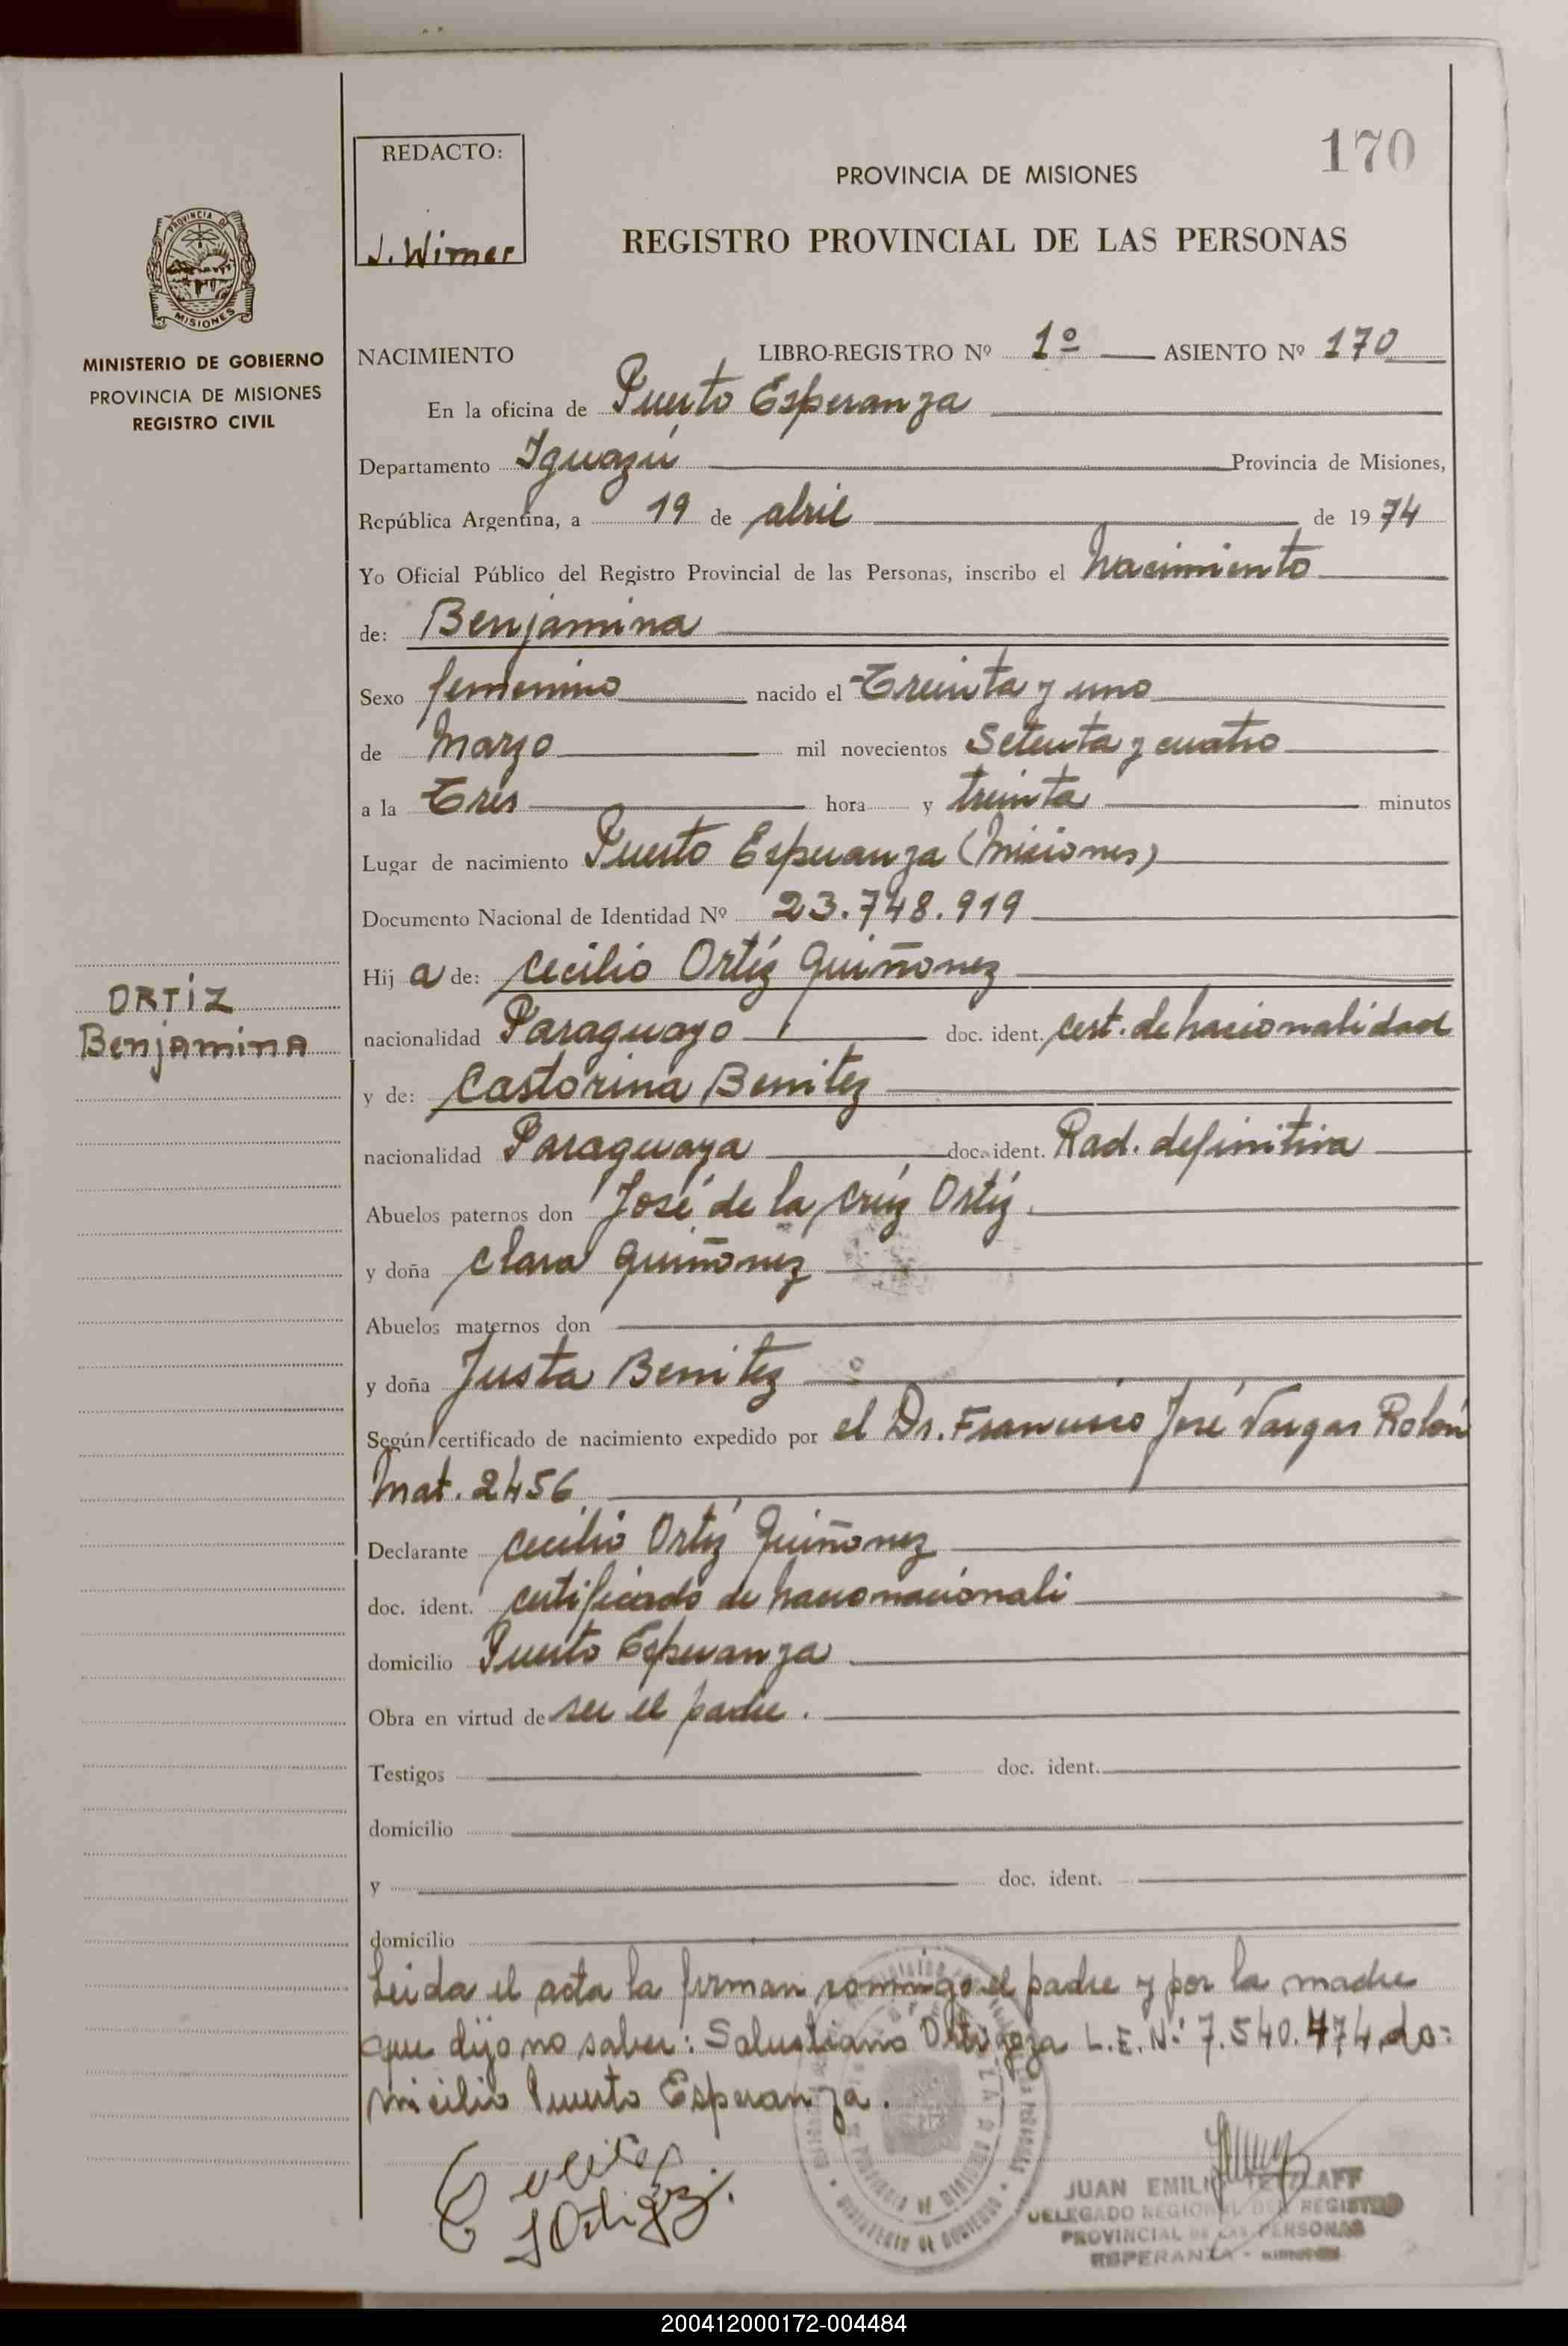 170
REDACTO:
J. Wimer
PROVINCIA DE MISIONES
REGISTRO PROVINCIAL DE LAS PERSONAS
PROVINCIA DE
MISIONES
MINISTERIO DE GOBIERNO
PROVINCIA DE MISIONES
REGISTRO CIVIL
NACIMIENTO LIBRO-REGISTRO Nº 1º ASIENTO Nº 170
En la oficina de Puerto Esperanza
Departamento Iguazú Provincia de Misiones,
República Argentina, a 19 de abril de 1974
Yo Oficial Público del Registro Provincial de las Personas, inscribo el nacimiento
de: Benjamina
Sexo femenino nacido el Treinta y uno
de Marzo mil novecientos Setenta y cuatro
a la Tres hora y treinta minutos
Lugar de nacimiento Puerto Esperanza (Misiones)
Documento Nacional de Identidad Nº 23.748.919
Hija de: Cecilio Ortíz Quiñonez
ORTíZ
Benjamina
nacionalidad Paraguayo doc. ident. cert. de nacionalidad
y de: Castorina Benitez
nacionalidad Paraguaya doc. ident. Rad. definitiva
Abuelos paternos don José de la Crúz Ortíz.
y doña Clara Quiñonez
Abuelos maternos don
y doña Justa Benitez
Según certificado de nacimiento expedido por el Dr. Francisco José Vargas Rolón
Mat. 2456
Declarante Cecilio Ortíz Quiñonez
doc. ident. certificado de nacionacionali
domicilio Puerto Esperanza
Obra en virtud de ser el padre.
Testigos doc. ident.
domicilio
y doc. ident.
domicilio
Leida el acta la firman conmigo el padre y por la madre
que dijo no saber: Salustiano Ortigoza L.E. Nº 7.540.474, do=
micilio Puerto Esperanza.
JUAN EMILIO TETZLAFF
DELEGADO REGIONAL DEL REGISTRO
PROVINCIAL DE LAS PERSONAS
ESPERANZA - MISIONES
200412000172-004484